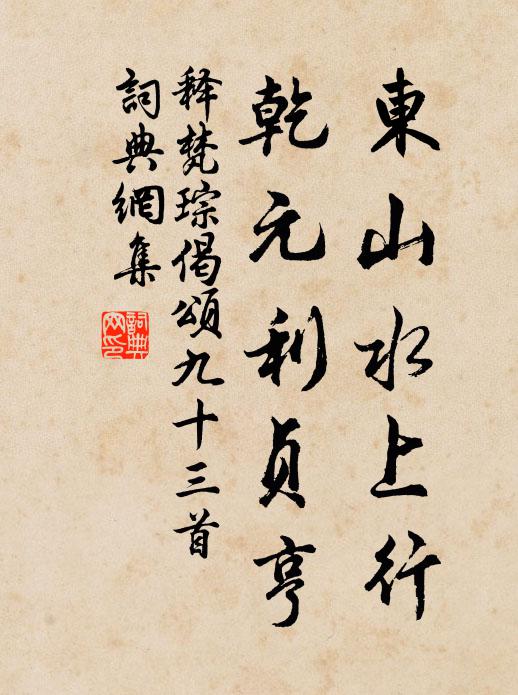 東山水上行
乾元利貞亨
释梵琮偈頌九十三首
詞典網集
詞典網印